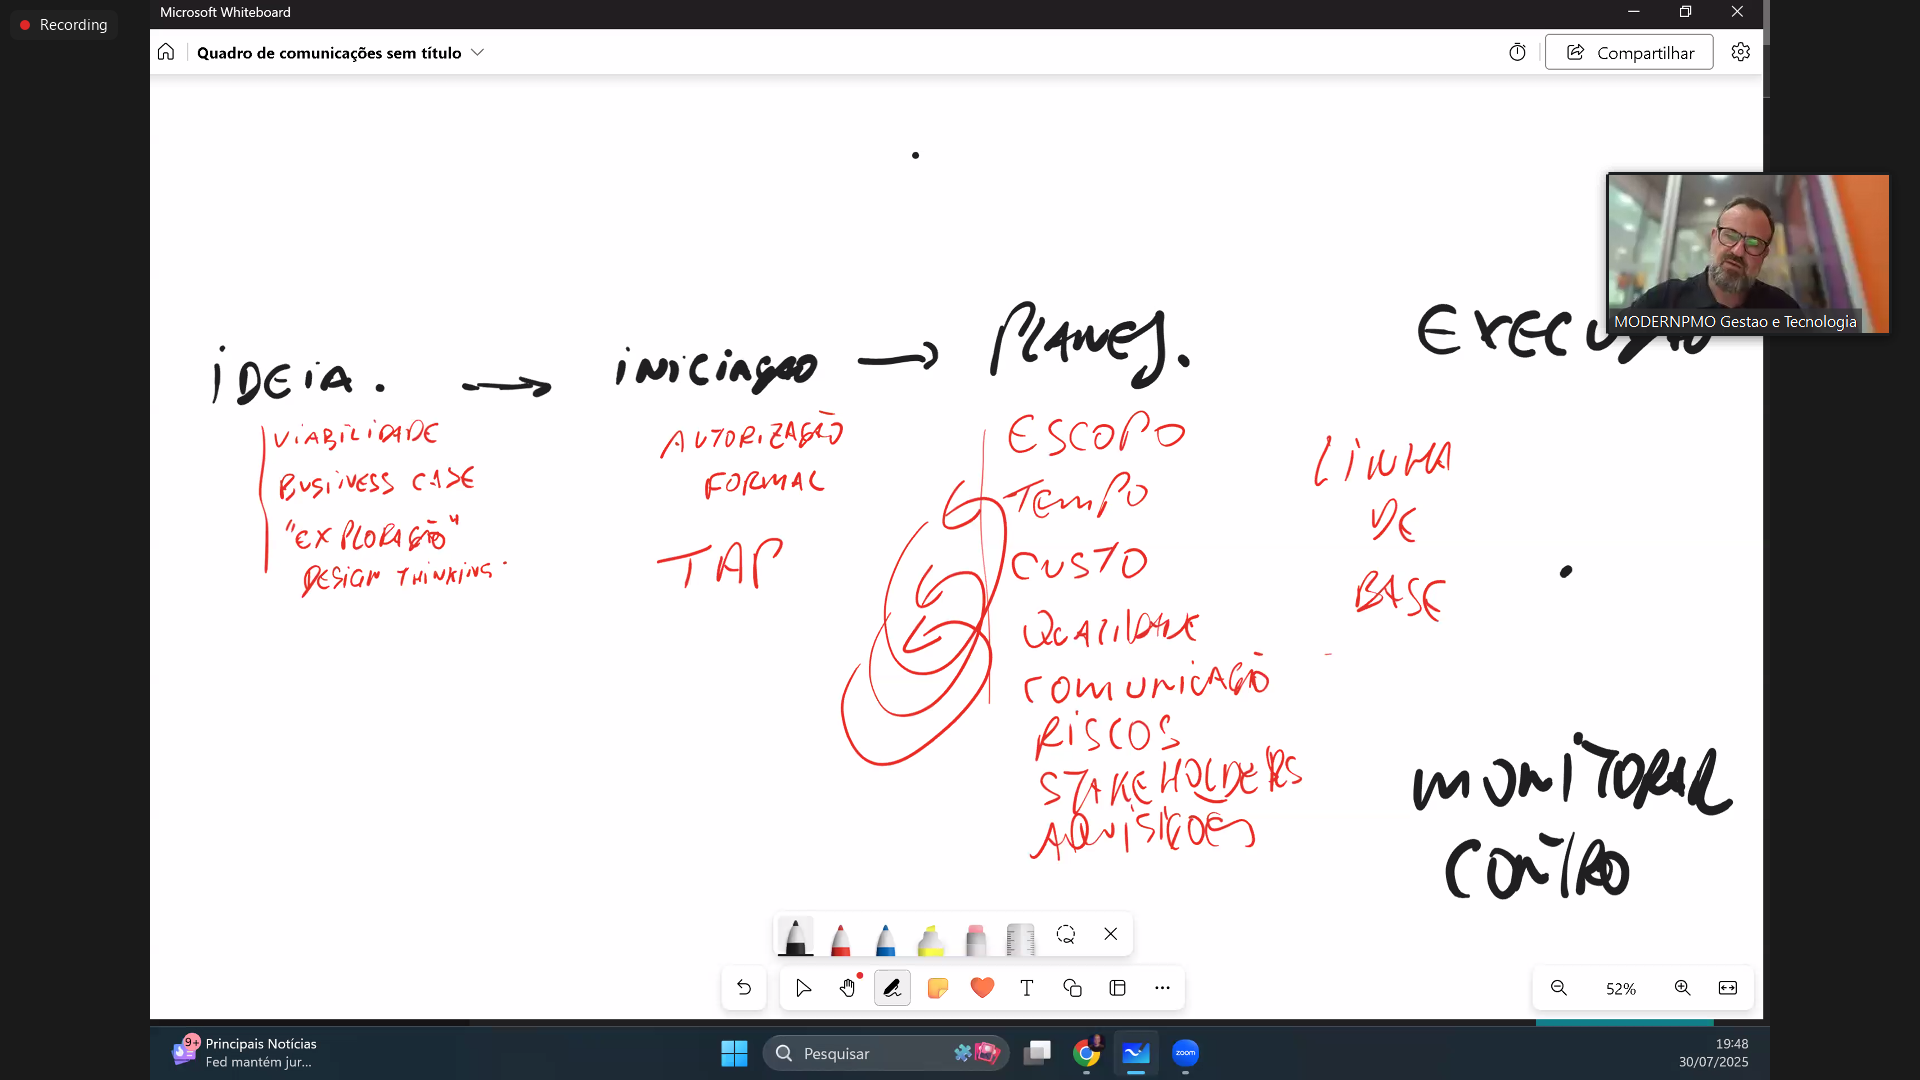 Recording
Microsoft Whiteboard
Quadro de comunicações sem título
Compartilhar
MODERNPMO Gestao e Tecnologia
IDEIA. → INICIAÇÃO → PLANEJ. EXECUÇÃO
VIABILIDADE
BUSINESS CASE
"EXPLORAÇÃO"
DESIGN THINKING
AUTORIZAÇÃO
FORMAL
TAP
ESCOPO
TEMPO
CUSTO
QUALIDADE
COMUNICAÇÃO
RISCOS
STAKEHOLDERS
AQUISIÇÕES
LINHA
DE
BASE
MONITORAR
CONTRO
52%
9+
Principais Notícias
Fed mantém jur...
Pesquisar
zoom
19:48
30/07/2025